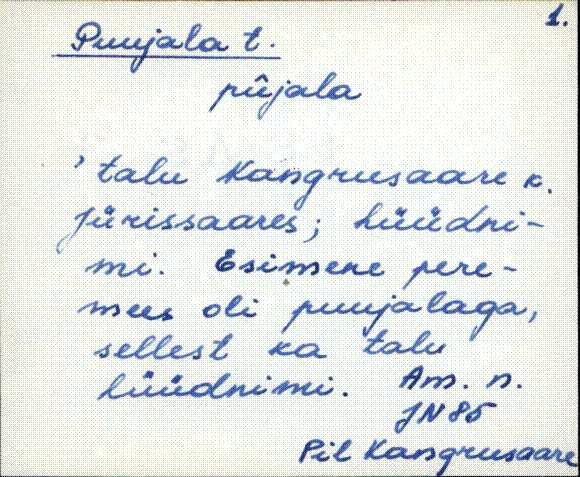 1.
Puujala t.
pûjala
'talu Kangrusaare k.
Jürissaares; hüüdni-
mi. Esimene pere-
mees oli puujalaga,
sellest ka talu
hüüdnimi. Am. n.
JN 85
Pil Kangrusaare